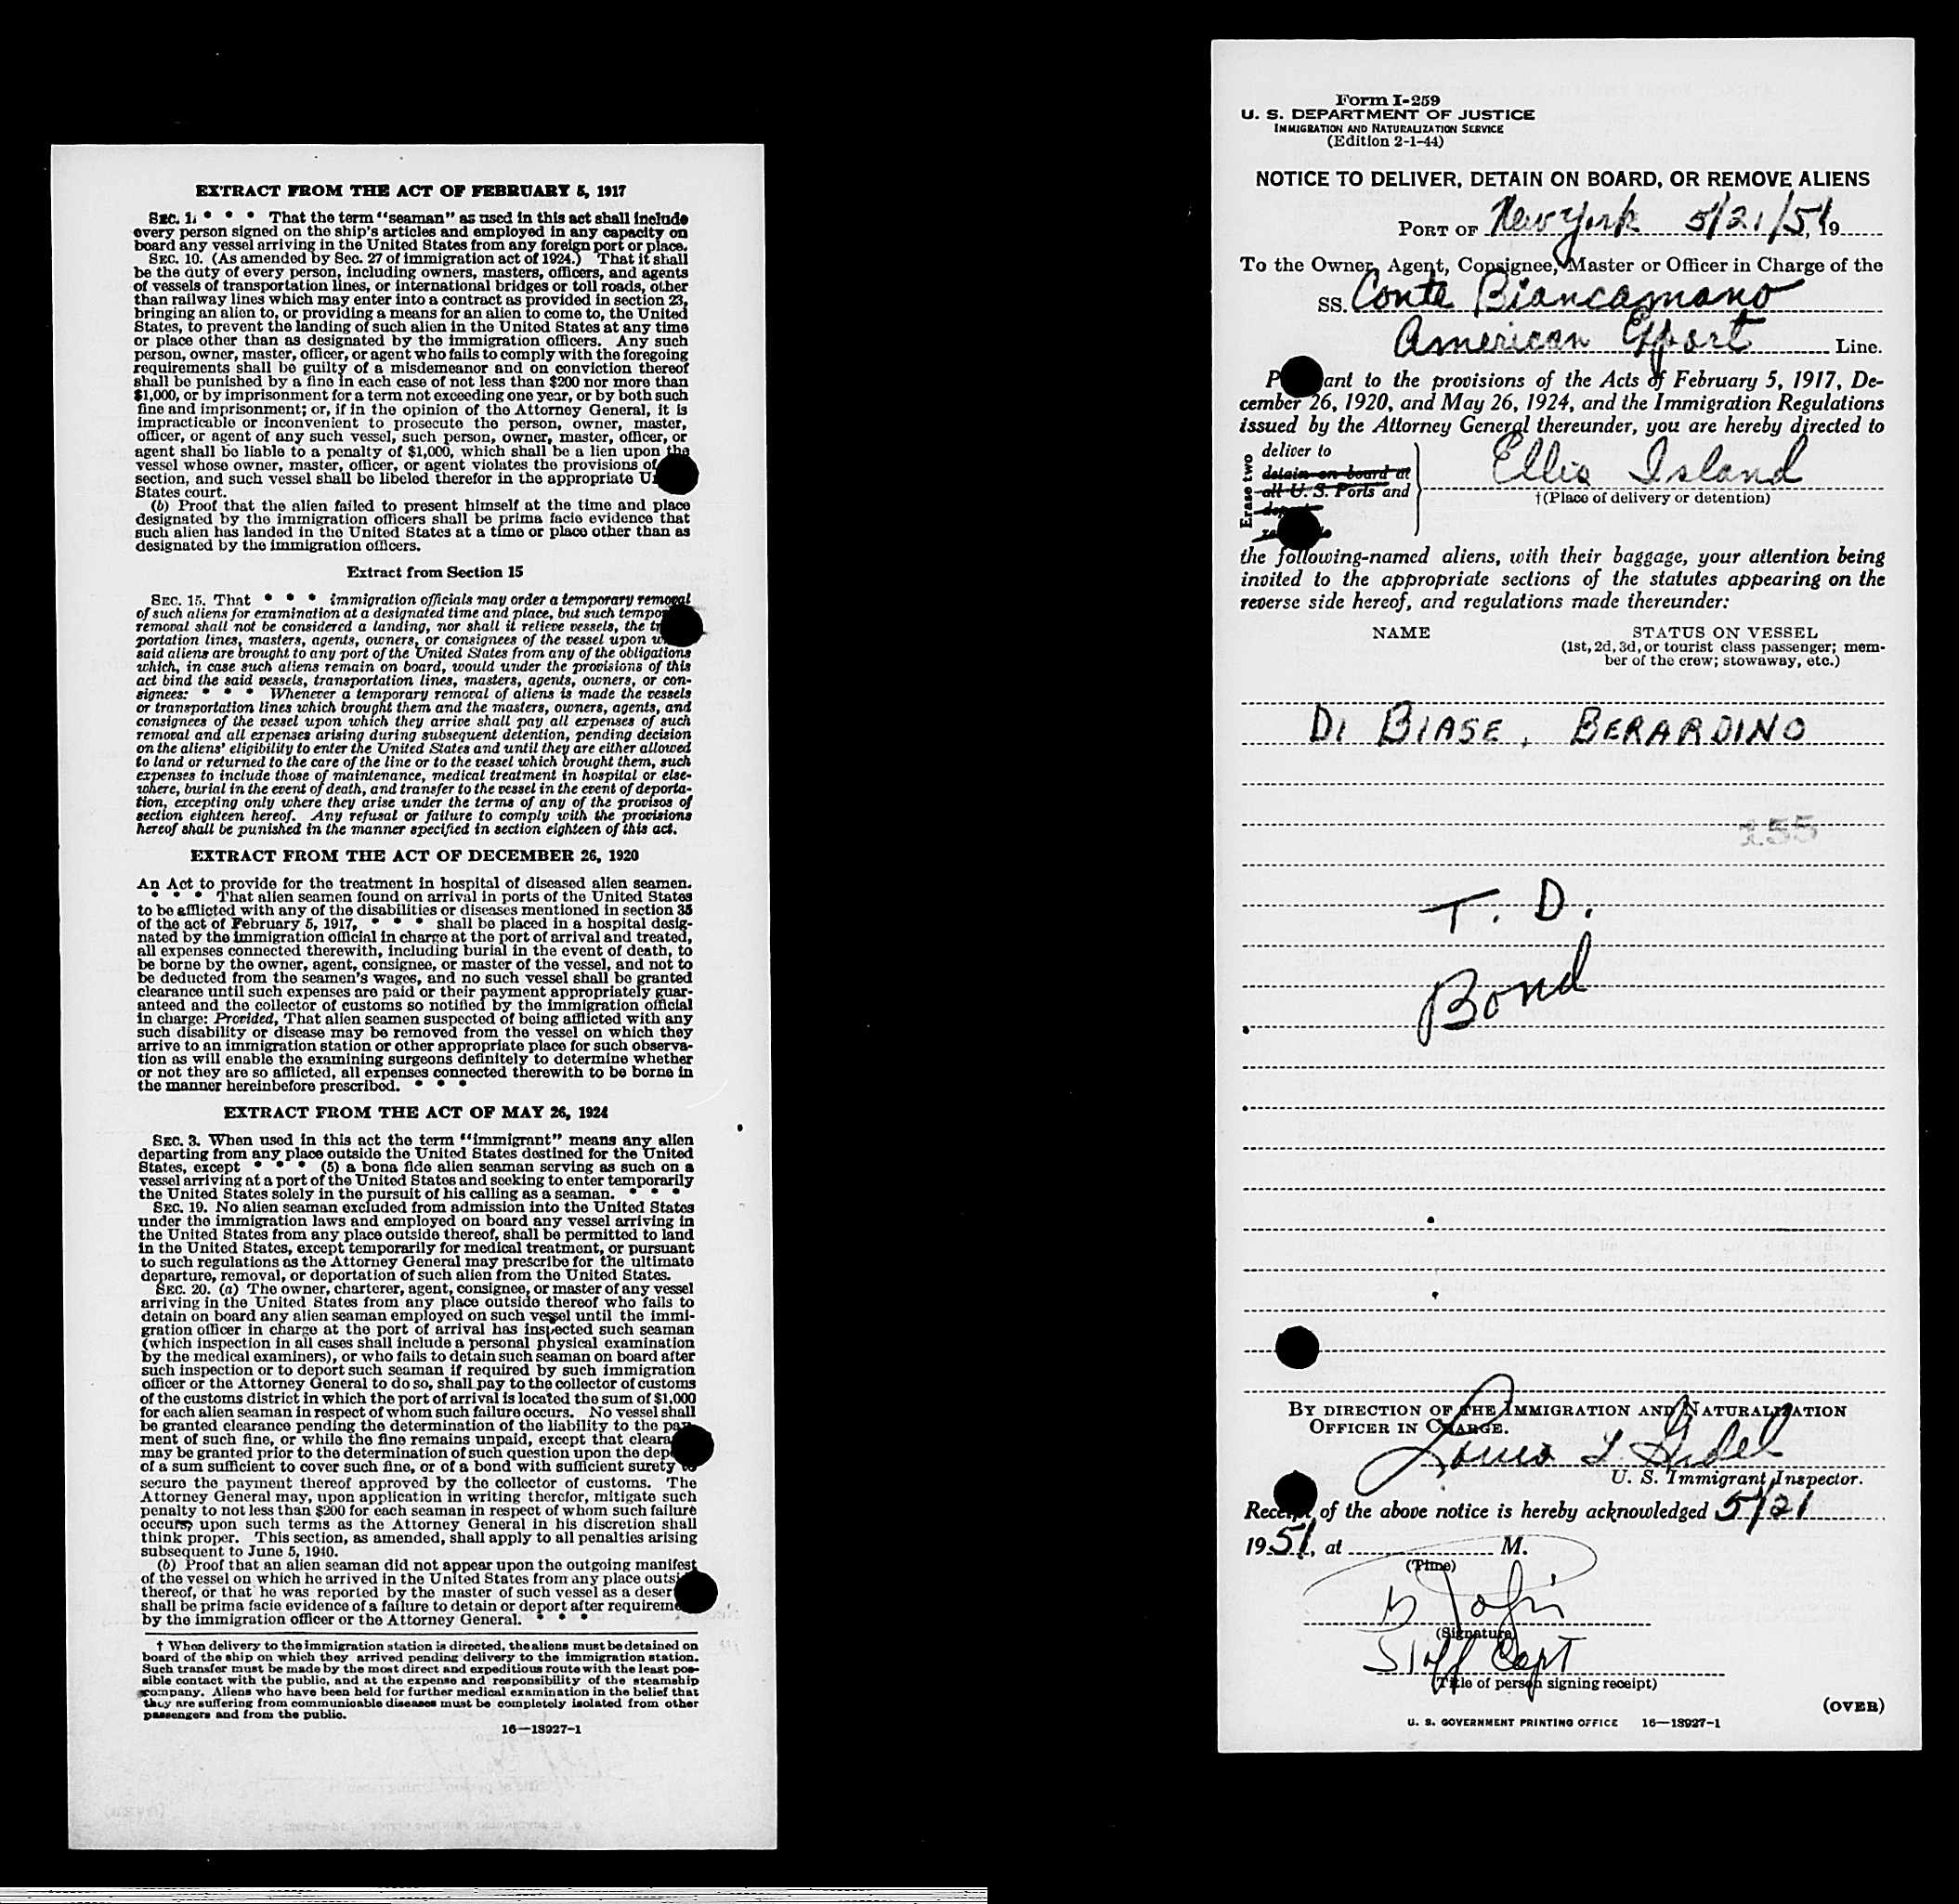 EXTRACT FROM THE ACT OF FEBRUARY 5, 1917
SEC. 1. * * * That the term "seaman" as used in this act shall include
every person signed on the ship's articles and employed in any capacity on
board any vessel arriving in the United States from any foreign port or place.
SEC. 10. (As amended by Sec. 27 of immigration act of 1924.) That it shall
be the duty of every person, including owners, masters, officers, and agents
of vessels of transportation lines, or international bridges or toll roads, other
than railway lines which may enter into a contract as provided in section 23,
bringing an alien to, or providing a means for an alien to come to, the United
States, to prevent the landing of such alien in the United States at any time
or place other than as designated by the immigration officers. Any such
person, owner, master, officer, or agent who fails to comply with the foregoing
requirements shall be guilty of a misdemeanor and on conviction thereof
shall be punished by a fine in each case of not less than $200 nor more than
$1,000, or by imprisonment for a term not exceeding one year, or by both such
fine and imprisonment; or, if in the opinion of the Attorney General, it is
impracticable or inconvenient to prosecute the person, owner, master,
officer, or agent of any such vessel, such person, owner, master, officer, or
agent shall be liable to a penalty of $1,000, which shall be a lien upon the
vessel whose owner, master, officer, or agent violates the provisions of
section, and such vessel shall be libeled therefor in the appropriate
States court.
(b) Proof that the alien failed to present himself at the time and place
designated by the immigration officers shall be prima facie evidence that
such alien has landed in the United States at a time or place other than as
designated by the immigration officers.
Extract from Section 15
SEC. 15. That * * * immigration officials may order a temporary removal
of such aliens for examination at a designated time and place, but such
removal shall not be considered a landing, nor shall it relieve vessels, the
portation lines, masters, agents, owners, or consignees of the vessel upon
said aliens are brought to any port of the United States from any of the obligations
which, in case such aliens remain on board, would under the provisions of this
act bind the said vessels, transportation lines, masters, agents, owners, or con-
signees: * * * Whenever a temporary removal of aliens is made the vessels
or transportation lines which brought them and the masters, owners, agents, and
consignees of the vessel upon which they arrive shall pay all expenses of such
removal and all expenses arising during subsequent detention, pending decision
on the aliens' eligibility to enter the United States and until they are either allowed
to land or returned to the care of the line or to the vessel which brought them, such
expenses to include those of maintenance, medical treatment in hospital or else-
where, burial in the event of death, and transfer to the vessel in the event of deporta-
tion, excepting only where they arise under the terms of any of the provisos of
section eighteen hereof. Any refusal or failure to comply with the provisions
hereof shall be punished in the manner specified in section eighteen of this act.
EXTRACT FROM THE ACT OF DECEMBER 26, 1920
An Act to provide for the treatment in hospital of diseased alien seamen.
* * * That alien seamen found on arrival in ports of the United States
to be afflicted with any of the disabilities or diseases mentioned in section 35
of the act of February 5, 1917, * * * shall be placed in a hospital desig-
nated by the immigration official in charge at the port of arrival and treated,
all expenses connected therewith, including burial in the event of death, to
be borne by the owner, agent, consignee, or master of the vessel, and not to
be deducted from the seamen's wages, and no such vessel shall be granted
clearance until such expenses are paid or their payment appropriately guar-
anteed and the collector of customs so notified by the immigration official
in charge: Provided, That alien seamen suspected of being afflicted with any
such disability or disease may be removed from the vessel on which they
arrive to an immigration station or other appropriate place for such observa-
tion as will enable the examining surgeons definitely to determine whether
or not they are so afflicted, all expenses connected therewith to be borne in
the manner hereinbefore prescribed. * * *
EXTRACT FROM THE ACT OF MAY 26, 1924
SEC. 3. When used in this act the term "immigrant" means any alien
departing from any place outside the United States destined for the United
States, except * * * (5) a bona fide alien seaman serving as such on a
vessel arriving at a port of the United States and seeking to enter temporarily
the United States solely in the pursuit of his calling as a seaman. * * *
SEC. 19. No alien seaman excluded from admission into the United States
under the immigration laws and employed on board any vessel arriving in
the United States from any place outside thereof, shall be permitted to land
in the United States, except temporarily for medical treatment, or pursuant
to such regulations as the Attorney General may prescribe for the ultimate
departure, removal, or deportation of such alien from the United States.
SEC. 20. (a) The owner, charterer, agent, consignee, or master of any vessel
arriving in the United States from any place outside thereof who fails to
detain on board any alien seaman employed on such vessel until the immi-
gration officer in charge at the port of arrival has inspected such seaman
(which inspection in all cases shall include a personal physical examination
by the medical examiners), or who fails to detain such seaman on board after
such inspection or to deport such seaman if required by such immigration
officer or the Attorney General to do so, shall pay to the collector of customs
of the customs district in which the port of arrival is located the sum of $1,000
for each alien seaman in respect of whom such failure occurs. No vessel shall
be granted clearance pending the determination of the liability to the pay-
ment of such fine, or while the fine remains unpaid, except that
may be granted prior to the determination of such question upon the
of a sum sufficient to cover such fine, or of a bond with sufficient surety to
secure the payment thereof approved by the collector of customs. The
Attorney General may, upon application in writing therefor, mitigate such
penalty to not less than $200 for each seaman in respect of whom such failure
occurs, upon such terms as the Attorney General in his discretion shall
think proper. This section, as amended, shall apply to all penalties arising
subsequent to June 5, 1940.
(b) Proof that an alien seaman did not appear upon the outgoing manifest
of the vessel on which he arrived in the United States from any place
thereof, or that he was reported by the master of such vessel as a
shall be prima facie evidence of a failure to detain or deport after
by the immigration officer or the Attorney General. * * *
† When delivery to the immigration station is directed, the aliens must be detained on
board of the ship on which they arrived pending delivery to the immigration station.
Such transfer must be made by the most direct and expeditious route with the least pos-
sible contact with the public, and at the expense and responsibility of the steamship
company. Aliens who have been held for further medical examination in the belief that
they are suffering from communicable diseases must be completely isolated from other
passengers and from the public.
16—18927-1
Form I-259
U. S. DEPARTMENT OF JUSTICE
IMMIGRATION AND NATURALIZATION SERVICE
(Edition 2-1-44)
NOTICE TO DELIVER, DETAIN ON BOARD, OR REMOVE ALIENS
PORT OF New York 5/21/51, 19
To the Owner, Agent, Consignee, Master or Officer in Charge of the
SS. Conte Biancamano
American Export Line.
P ant to the provisions of the Acts of February 5, 1917, De-
cember 26, 1920, and May 26, 1924, and the Immigration Regulations
issued by the Attorney General thereunder, you are hereby directed to
Erase two
deliver to
detain on board at
all U. S. Ports and
Ellis Island
†(Place of delivery or detention)
the following-named aliens, with their baggage, your attention being
invited to the appropriate sections of the statutes appearing on the
reverse side hereof, and regulations made thereunder:
NAME STATUS ON VESSEL
(1st, 2d, 3d, or tourist class passenger; mem-
ber of the crew; stowaway, etc.)
DI BIASE, BERARDINO
155
T. D.
Bond
BY DIRECTION OF THE IMMIGRATION AND NATURALIZATION
OFFICER IN CHARGE.
Louis
U. S. Immigrant Inspector.
Receipt of the above notice is hereby acknowledged 5/21
1951, at M.
(Time)
(Signature)
Staff Capt
(Title of person signing receipt)
(OVER)
U. S. GOVERNMENT PRINTING OFFICE 16—18927-1